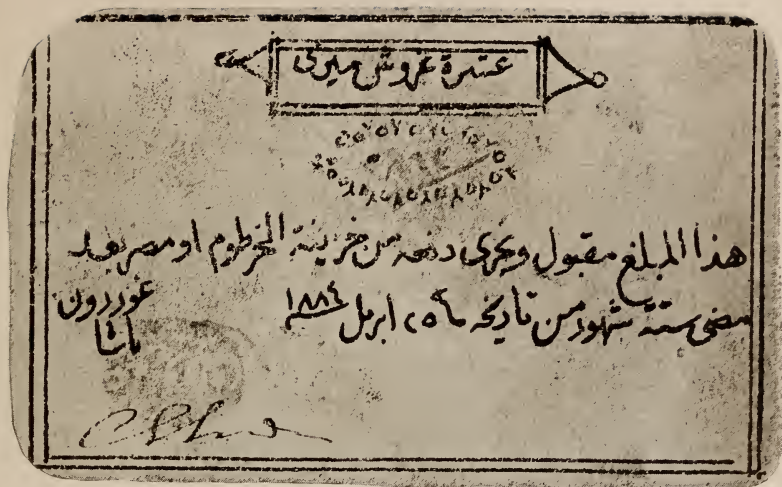 عشرة غروش ميرى
هذا المبلغ مقبول ويجرى دفعه من خزينة الخرطوم او مصر بعد
مضى ستة شهور من تاريخه ٢٥ ابريل ١٨٨٤
غوردون
باشا